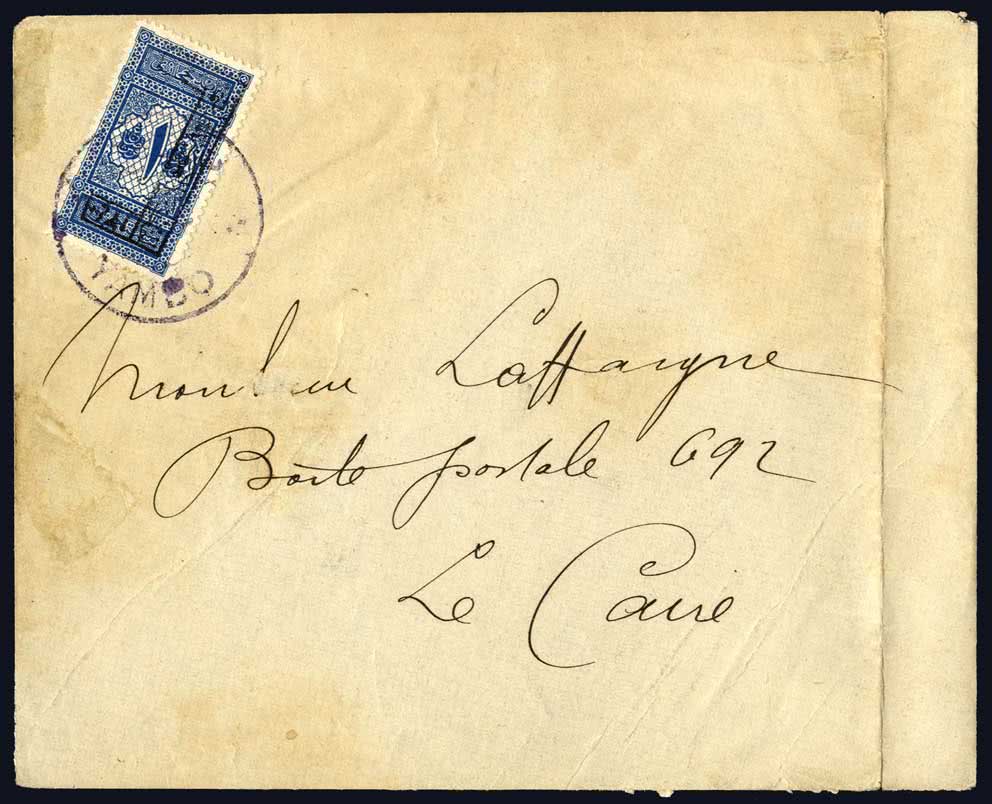 YAMBO
Monsieur Laffargue
Boite postale 692
Le Caire